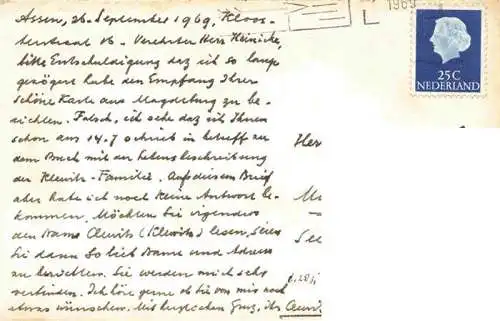 Assen, 26. September 1969, Kloos-
terstraat 16. Verehrter Herr Heinicke,
bitte Entschuldigung daz ich so lang
gezögert habe den Empfang Ihrer
schöne Karte aus Magdeburg zu be-
richten. Falsch, ich sehe daz ich Ihnen
schon am 14-7 schrieb in betreff zu
dem Buch mit der Lebensbeschreibung
der Klewits-Familie. Auf diesem Brief
aber habe ich noch keine Antwort be-
kommen. Möchten Sie irgendwo
den Name Clewits (Klewitz) lesen, seien
Sie dann so lieb Name und Adresse
zu berichten. Sie werden mich sehr
verbinden. Ich höre gerne ob Sie von mir noch
etwas wünschen. Mit herzlichen Gruz, Ihr
1969
25C
NEDERLAND
Her